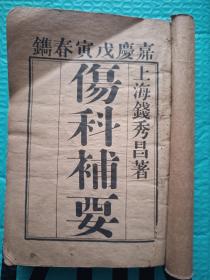 嘉慶戊寅春鐫
上海錢秀昌著
傷科補要